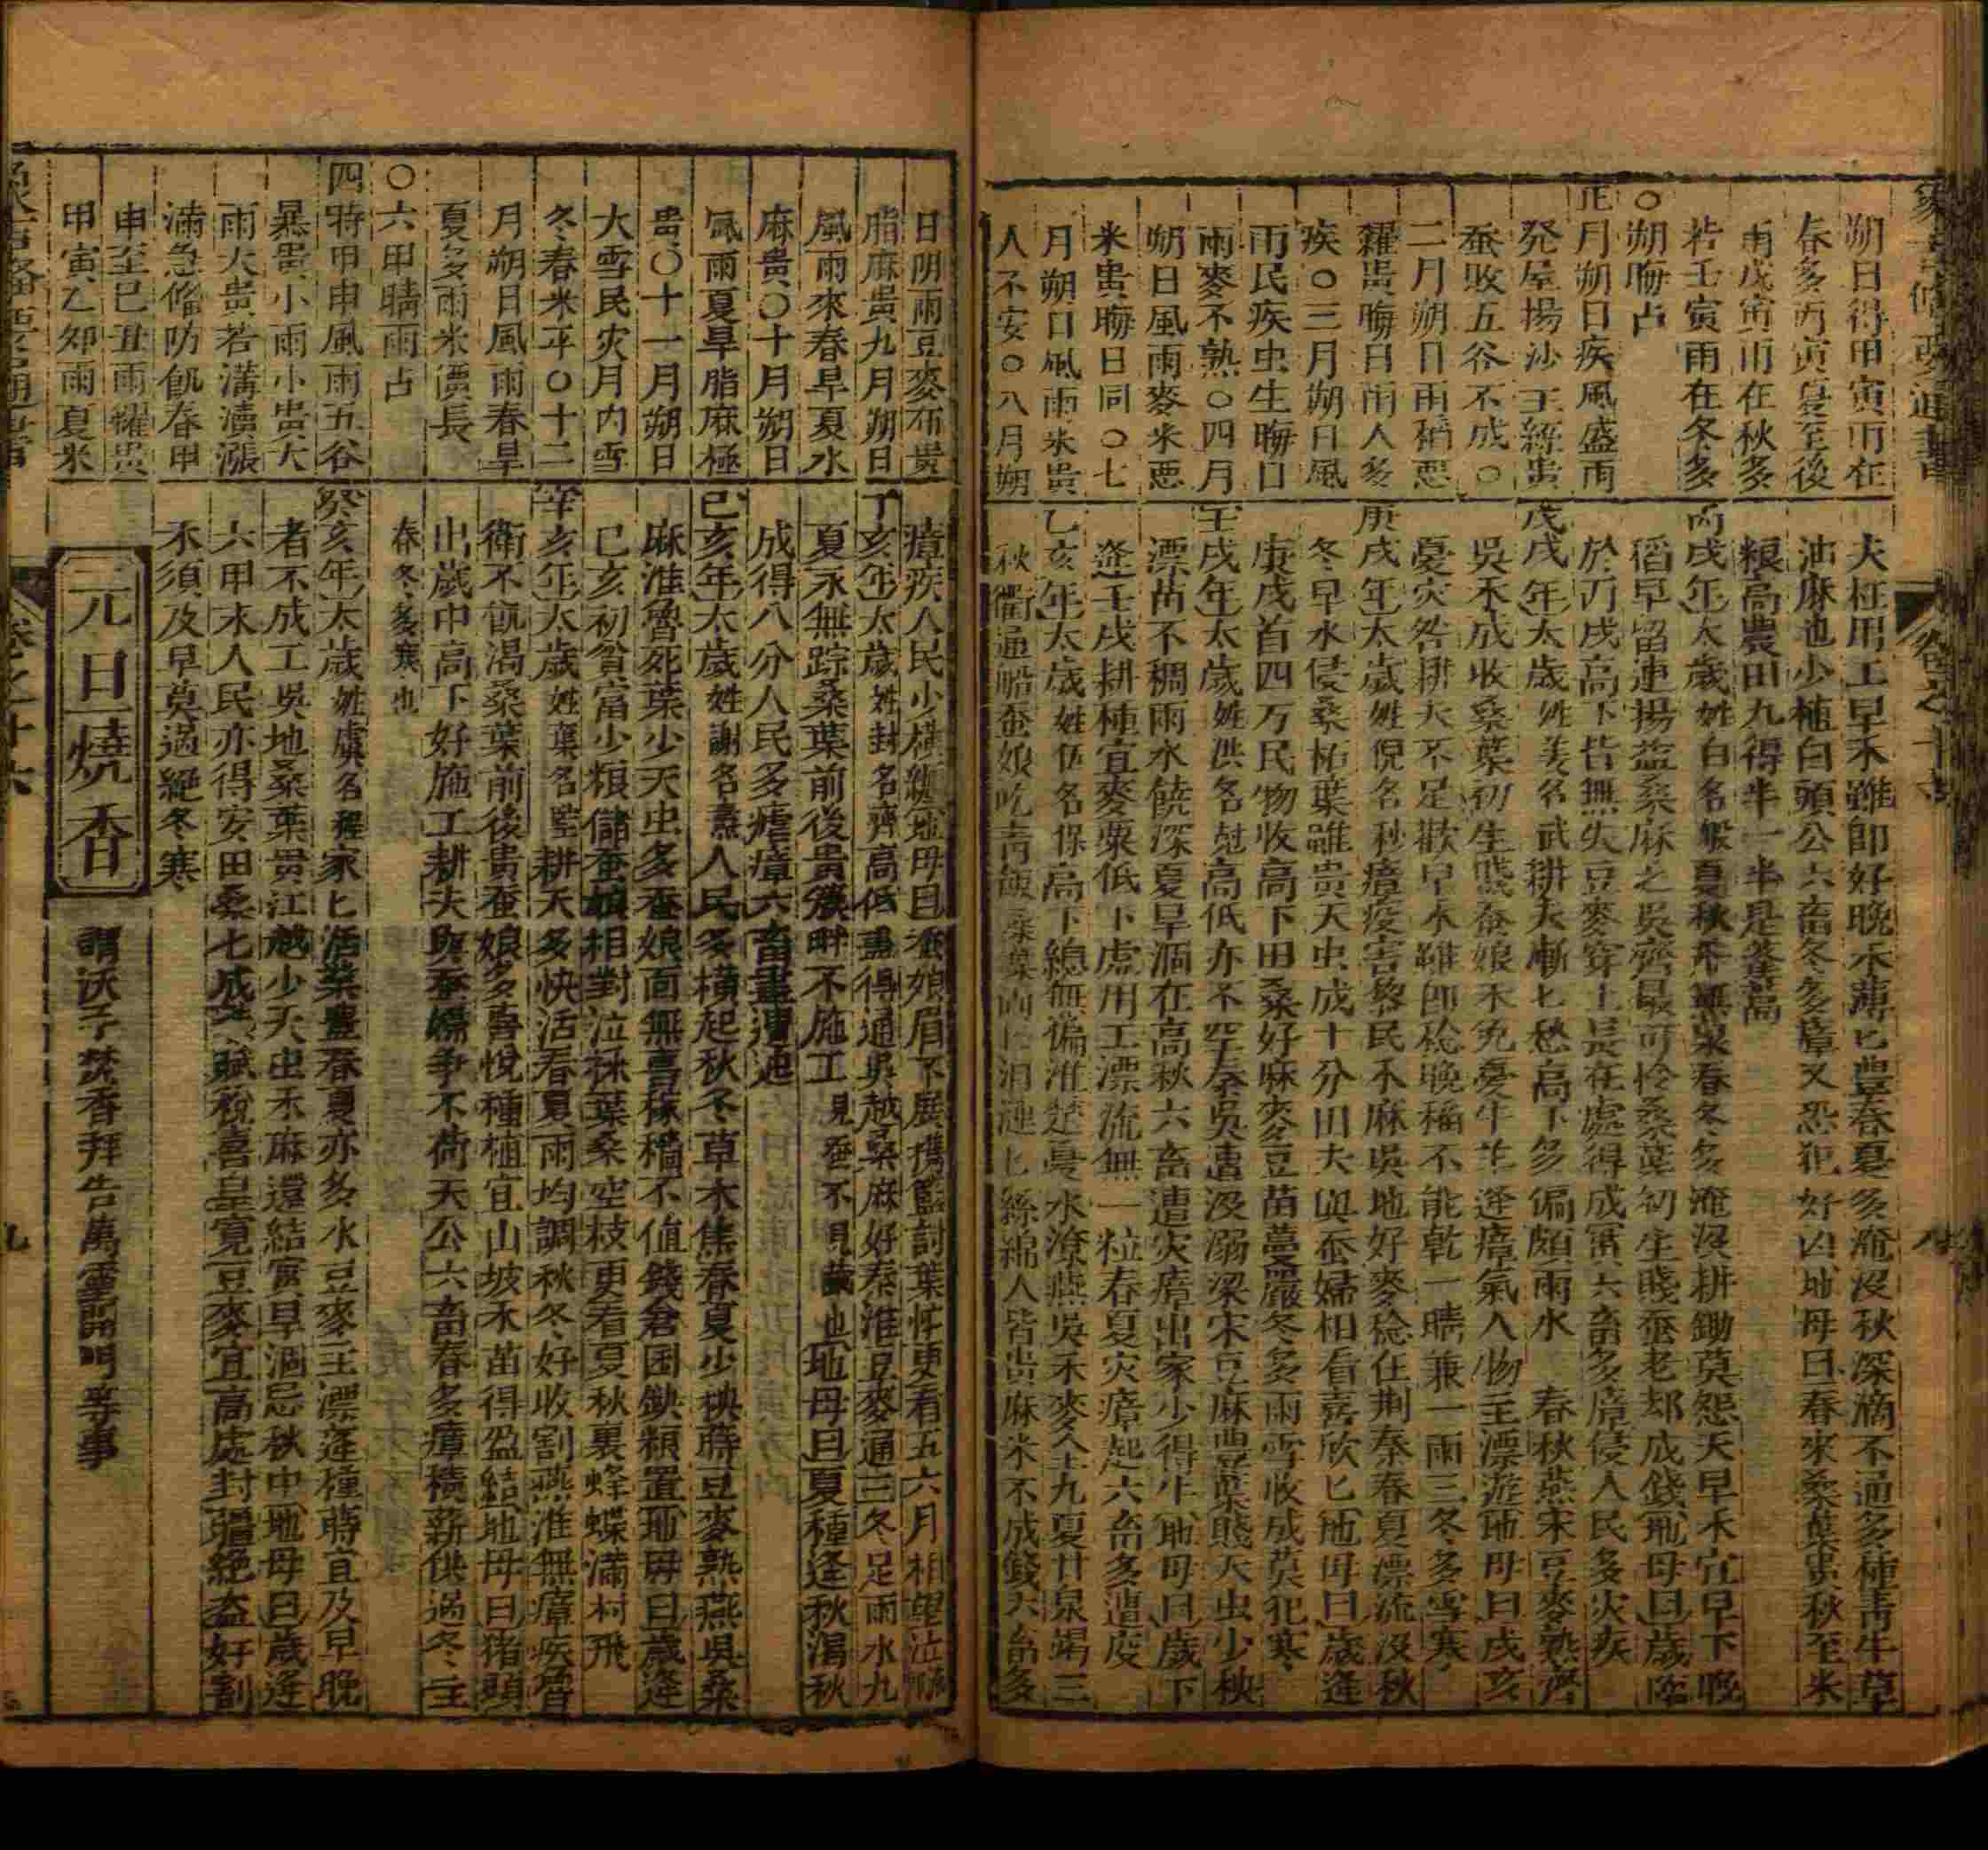 朔日得甲寅雨在
春多丙寅夏至後
雨戊寅雨在秋多
若壬寅雨在冬多
○朔晦占
正月朔日疾風盛雨
発屋揚沙主絲貴
蚕敗五谷不成○
二月朔日雨稻惡
糴貴晦日雨人多
疾○三月朔日風
雨民疾虫生晦日
雨麥不熟○四月
朔日風雨麥米惡
米貴晦日同○七
月朔日風雨米貴
人不安○八月朔
夫枉用工早禾雖即好晚禾薄匕豊春夏多淹没秋深滴不通多種青牛草
油麻也少植白頭公六畜冬多瘴又恐犯好凶地母曰春來桑葉貴秋至米
粮高農田九得半一半是蓬蒿
丙戌年太歲姓白名般夏秋禾無泉春冬多淹没耕鋤莫怨天早禾宜早下晚
稻早留連揚益桑麻乏吳齊最可怜桑葉初生賤蚕老却成錢地母曰歲臨
於丙戌高下皆無失豆麥穿土長在處得成實六畜多瘴侵人民多灾疾
戊戌年太歲姓姜名武耕夫漸匕愁高下多偏頗雨水 春秋燕宋豆麥熟齊
吳禾不成收桑葉初生賤蚕娘未免憂牛羊逢瘴氣人物主漂遊地母曰戊亥
憂灾咎耕夫不足歡早禾雖即稔晚稻不能乾一晴兼一雨三冬多雪寒
庚戌年太歲姓倪名秒瘴疫害黎民禾麻吳地好麥稔在荆秦春夏漂流没秋
冬早水侵桑柘葉雖貴天虫成十分田夫與蚕婦相看喜欣匕地母曰歲逢
庚戌首四万民物收高下田桑好麻麥豆苗蔓嚴冬多雨雪收成莫犯寒
壬戌年太歲姓洪名㤥高低亦不空秦吳遭没溺梁宋豆麻豊葉賤天虫少秧
漂苗不稠雨水饒深夏旱涸在高秋六畜遭灾瘴田家少得牛地母曰歲下
逢壬戌耕種宜麥粟低下處用工漂流無一粒春夏灾瘴起六畜多遭疫
乙亥年太歲姓伍名保高下總無偏淮楚憂水潦燕吳禾麥全九夏甘泉竭三
秋衢通船蚕娘吃青飯桑葉向匕泪漣匕絲綿人皆貴麻米不成錢六畜多
日陰雨豆麥布貴
脂麻貴九月朔日
風雨來春旱夏水
麻貴○十月朔日
風雨夏旱脂麻極
貴○十一月朔日
大雪民灾月内雪
冬春米平○十二
月朔日風雨春旱
夏多雨米價長
○六甲晴雨占
四時甲申風雨五谷
暴貴小雨小貴大
雨大貴若溝瀆漲
滿急備防飢春甲
申至己丑雨糴貴
甲寅乙卯雨夏米
瘴疾人民少橫纏地母曰蚕娘眉不展携籃討葉忙更看五六月相望泣
丁亥年太歲姓封名齊高低盡得通吳越桑麻好秦淮豆麥通三冬足雨水九
夏永無踪桑葉前後貴簇畔不施工見蚕不見繭也地母曰夏種逢秋渴秋
成得八分人民多瘧瘴六畜盡遭迍
己亥年太歲姓謝名燾人民多橫起秋冬草木焦春夏少秧蒔豆麥熟燕吳桑
麻淮魯死葉少天虫多蚕娘面無喜稼穡不值錢倉囷缺粮置地母曰歲逢
己亥初貧富少粮儲蚕娘相對泣秾葉桑空枝更看夏秋裏蜂蝶滿村飛
辛亥年太歲姓葉名堅耕夫多快活春夏雨均調秋冬好收割燕淮無瘴疾魯
衛不飢渴桑葉前後貴蚕娘多喜悅種植宜山坡禾苗得盈結地母曰猪頭
出歲中高下好施工耕夫與蚕婦爭不荷天公六畜春多瘴積薪供過冬主
春冬多寒也
癸亥年太歲姓虞名程家匕活業豊春夏亦多水豆麥主漂蓬種蒔宜及早晚
者不成工吳地桑葉貴江越少天虫禾麻還結實旱涸忌秋中地母曰歲逢
六甲末人民亦得安田桑七成熟賦稅喜皇寬豆麥宜高處封疆絶盗好割
禾須及早莫過絶冬寒
元旦燒香
謂沃子焚香拜告萬靈開門等事
卷之十六
九